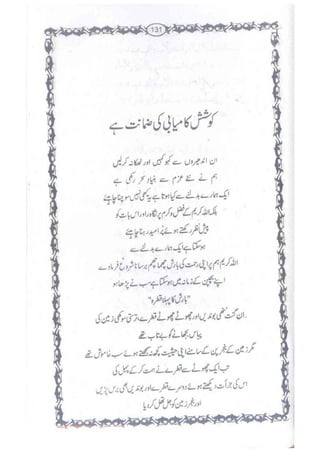 131
کوشش کامیابی کی ضمانت ہے
ان اندھیروں سے کہو کہیں اور ٹھکانہ کر لیں
ہم نے نئے عزم سے بنیاد سحر رکھی ہے
ایک ہمارے بدلنے سے کیا ہوتا ہے یہ کبھی نہیں سوچنا چاہیئے
بلکہ اللہ کریم کے فضل و کرم پر نگاہ اور اس بات کو
پیش نظر رکھتے ہوئے پُر امید رہنا چاہیئے
ہو سکتا ہے ایک ہمارے بدلنے سے
اللہ کریم ہم پر اپنی رحمت کی بارش چھما چھم برسانا شروع فرمادے
اپنے بچپن کے زمانہ میں ہو سکتا ہے سب نے پڑھا ہو
"بارش کا پہلا قطرہ"
ان گنت ننھی بوندیں اور چھوٹے چھوٹے قطرے، ترستی سوکھی زمین کی
پیاس بجھانے کو بے تاب تھے
مگر زمین کے بنجر پن کے سامنے اپنی حیثیت کچھ نہ سمجھتے ہوئے سب خاموش تھے
تب ایک چھوٹے سے قطرے نے ہمت کر کے پہل کی
اس کی جرأت دیکھتے ہوئے دوسرے قطرے اور بوندیں بھی برس پڑیں
اور بنجر زمین کو جل تھل کر دیا